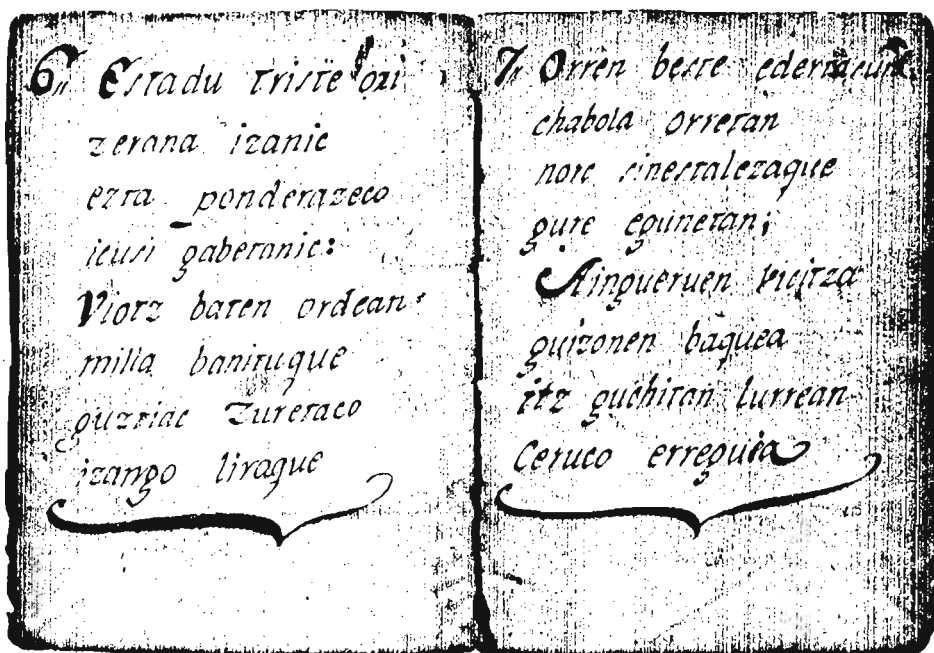 6,, Estadu triste ori
zerana izanic
ezta ponderazeco
icusi gabetanic:
Viotz baten ordean
milla banituque
guztiac Zuretaco
izango liraque
7,, Orren beste
chabola orretan
norc sinestalezaque
gure egunetan;
Aingueruen vicitza
guizonen baquea
itz guchitan lurrean
Ceruco erreguea